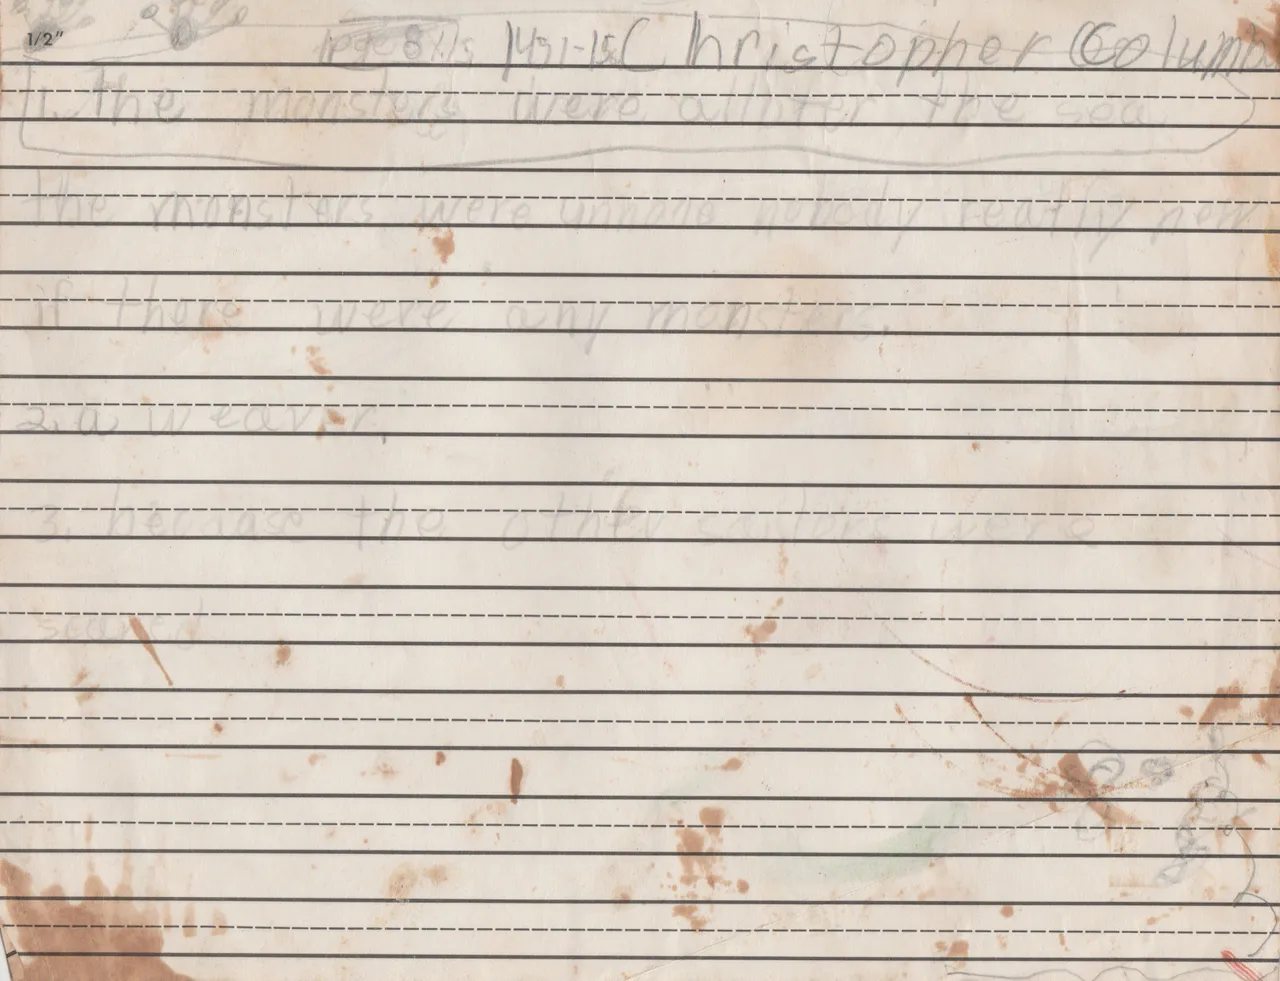 1/2"
Christopher Columb
1. the monsters were all over the sea
the monsters were unnone nobody really new
if there were any monsters.
2. a weaver.
3. becuase the other sailors were
scared